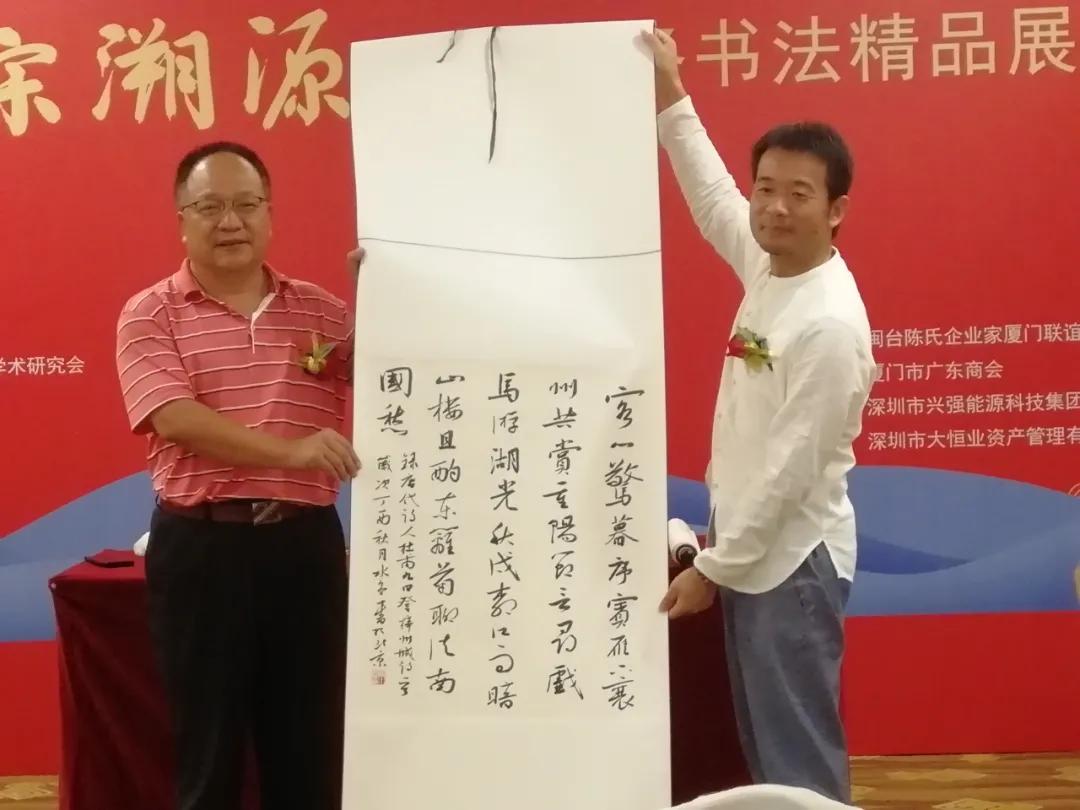 宗溯源
书法精品展
学术研究会
闽台陈氏企业家厦门联谊
厦门市广东商会
深圳市兴强能源科技集团
深圳市大恒业资产管理有
客心驚暮序賓雁下襄
州共賞重陽節言尋戲
馬游湖光秋戍江雨暗
山樓且酌東籬菊聊祛南
國愁
录古代诗人杜甫九日登梓州城诗
歲次丁酉秋月水書於北京